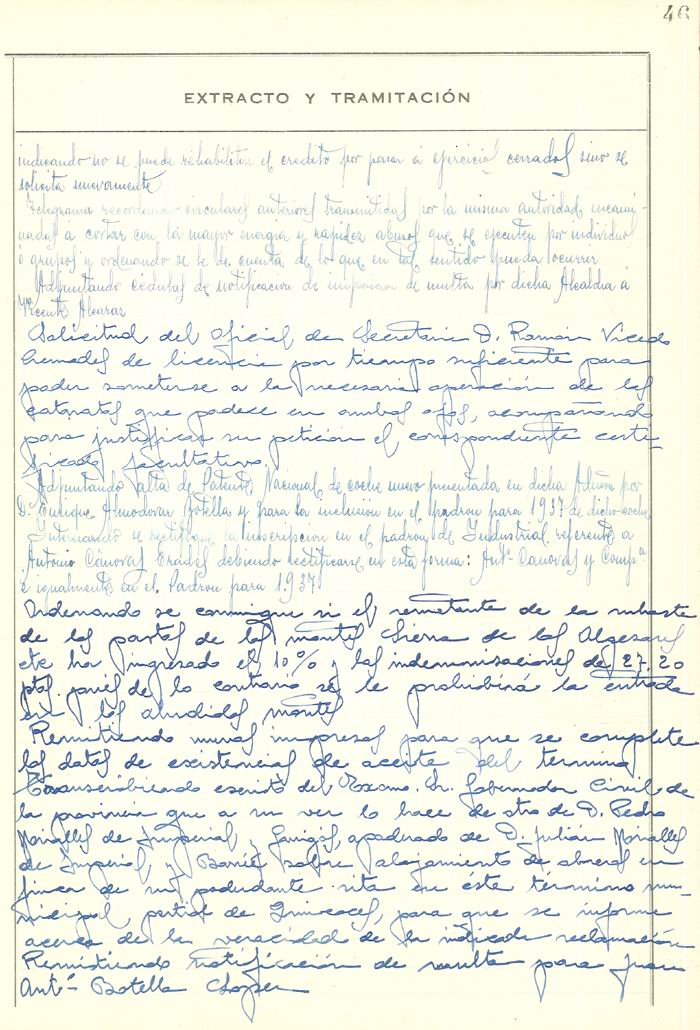 46
EXTRACTO Y TRAMITACIÓN
indicando no se puede rehabilitar el credito por pasar a ejercicios cerrados sino se
solicita nuevamente
Telegrama recordando circulares anteriores transmitidas por la misma autoridad encami-
nadas a cortar con la mayor energia y rapidez abusos que se ejecuten por individuos
o grupos y ordenando se le de cuenta de lo que en tal sentido pueda ocurrir
Adjuntando cedulas de notificacion de imposicion de multa por dicha Alcaldia a
Vicente Alcaraz
Solicitud del Oficial de Secretaria D. Ramón Vicedo
Cremades de licencia por tiempo suficiente para
poder someterse a la necesaria operación de las
cataratas que padece en ambos ojos, acompañando
para justificar su petición el correspondiente certi-
ficado facultativo.
Adjuntando alta de Patente Nacional de coche nuevo presentada en dicha Aduana por
D. Enrique Almodovar Botella y para la inclusion en el padron para 1937 de dicho coche
Interesando se rectifique la inscripcion en el padron de Industrial referente a
Antonio Cánovas debiendo rectificarse en esta forma: Antº Canovas y Compª
e igualmente en el Padron para 1937
Ordenando se comunique si el rematante de la subasta
de los partos de los montes Sierra de los Algezares
etc ha ingresado el 10% y las indemnizaciones de 27.20
ptas. pués de lo contrario se le prohibirá la entrada
en los aludidos montes
Remitiendo impresos para que se complete
los datos de existencias de aceite del termino
Transcribiendo escrito del Excmo. Sr. Gobernador Civil de
la provincia que a su vez lo hace de otro de D. Pedro
Miralles de Imperial y apoderado de D. Julián Miralles
de Imperial y Barrié sobre alojamiento de obreros en
finca de su poderdante sita en éste término mu-
nicipal, partida de para que se informe
acerca de la veracidad de la indicada reclamación
Remitiendo notificación de multa para Juan
Antº Botella Lopez